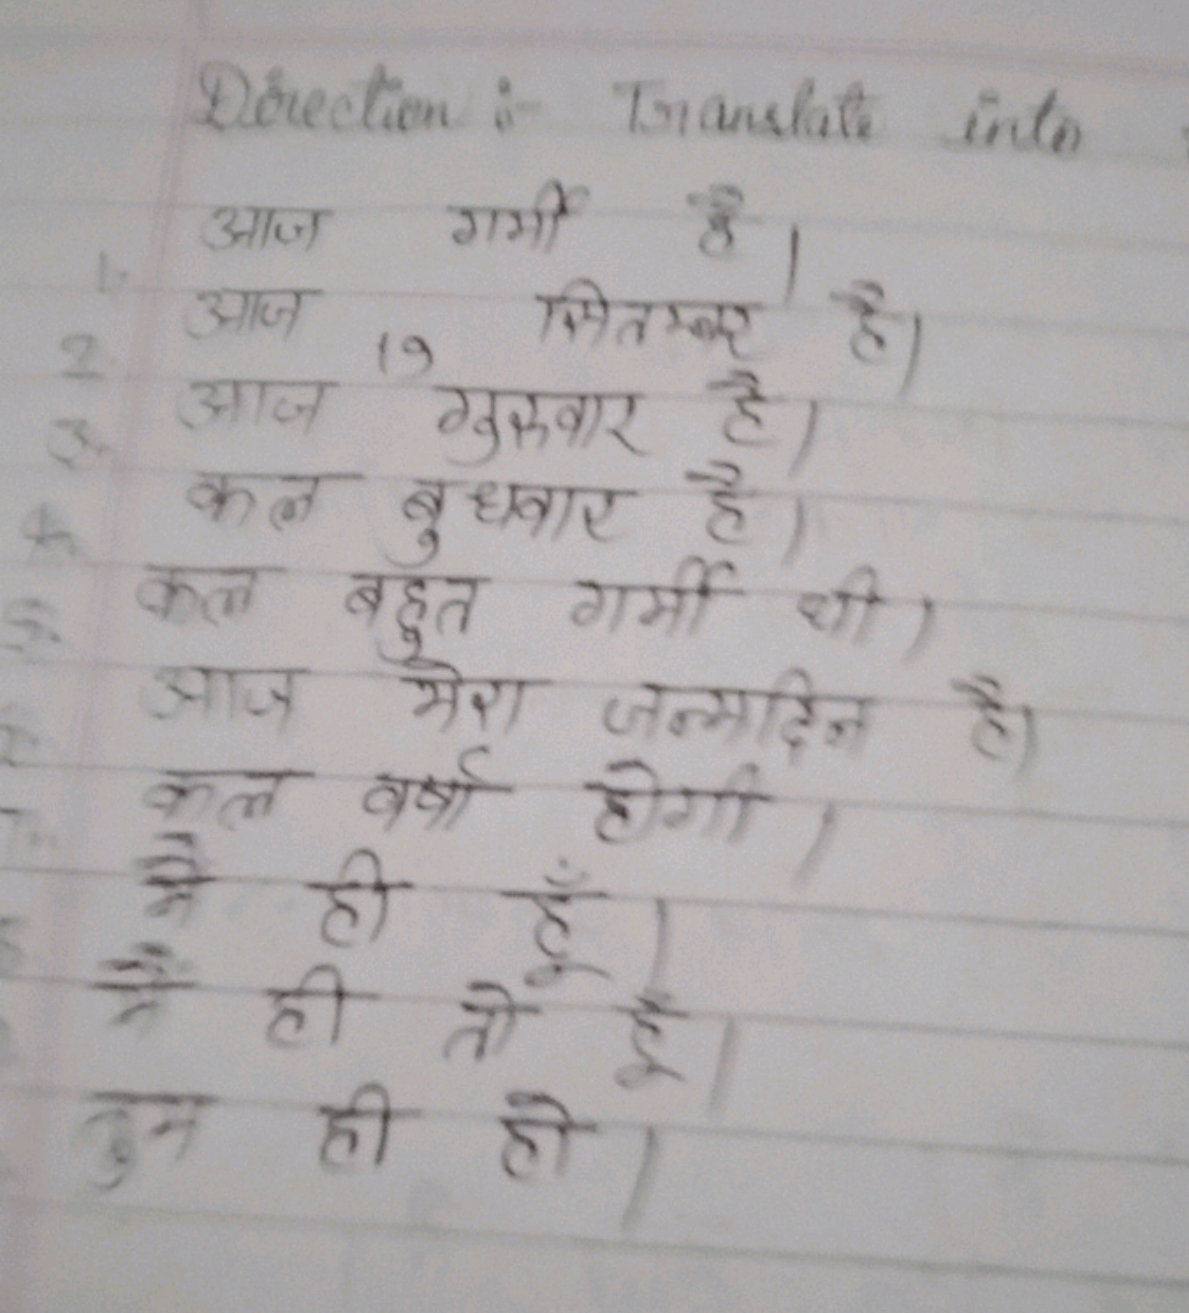 Direction :- Translate into
1. आज गर्मी है।
2. आज 19 सितम्बर है।
3. आज गुरुवार है।
4. कल बुधवार है।
5. कल बहुत गर्मी थी।
आज मेरा जन्मदिन है।
7. कल वर्षा होगी।
मैं ही हूँ।
मैं ही तो हूँ।
तुम ही हो।